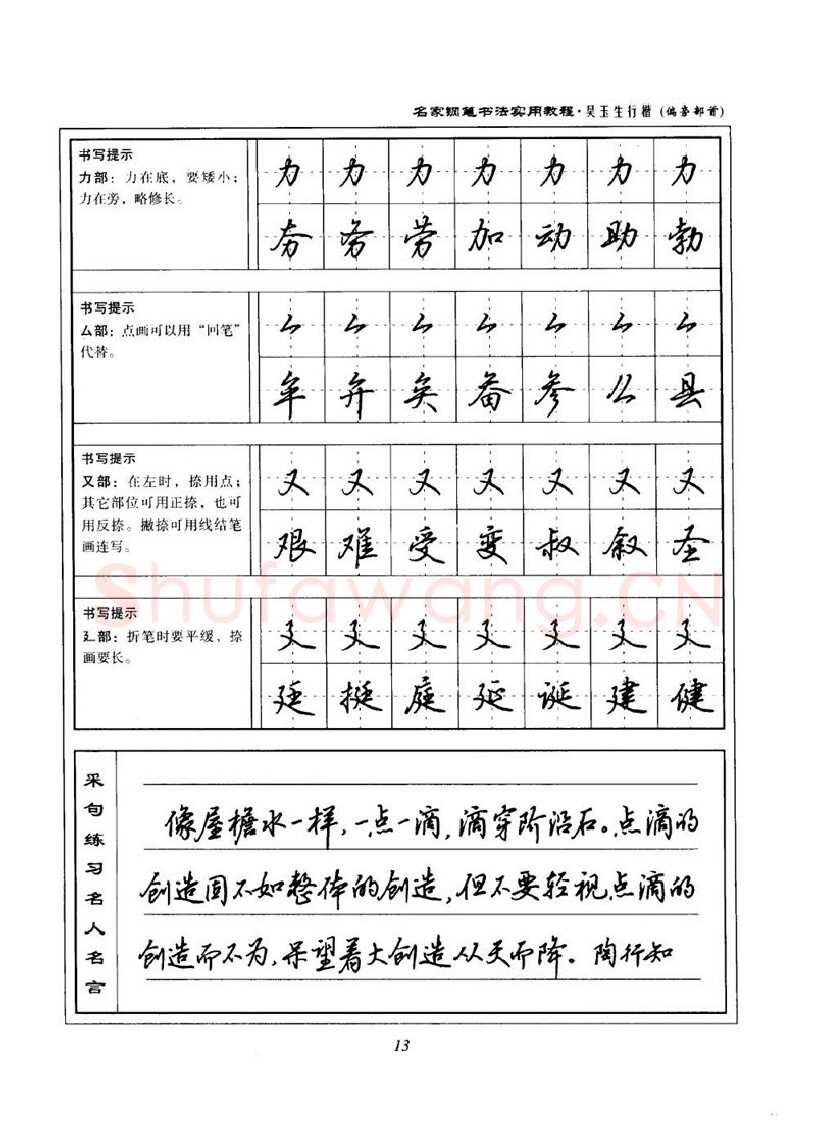 名家钢笔书法实用教程·吴玉生行楷(偏旁部首)
书写提示
力部：力在底，要矮小；
力在旁，略修长。
力 力 力 力 力 力 力
夯 务 劳 加 动 助 勃
书写提示
厶部：点画可以用“回笔”
代替。
厶 厶 厶 厶 厶 厶 厶
牟 弁 矣 畚 参 么 县
书写提示
又部：在左时，捺用点；
其它部位可用正捺，也可
用反捺。撇捺可用线结笔
画连写。
又 又 又 又 又 又 又
艰 难 受 变 叔 叙 圣
Shufawang.CN
书写提示
廴部：折笔时要平缓，捺
画要长。
廴 廴 廴 廴 廴 廴 廴
廷 挺 庭 延 诞 建 健
采句练习名人名言
像屋檐水一样，一点一滴，滴穿阶沿石。点滴的
创造固不如整体的创造，但不要轻视点滴的
创造而不为，呆望着大创造从天而降。陶行知
13